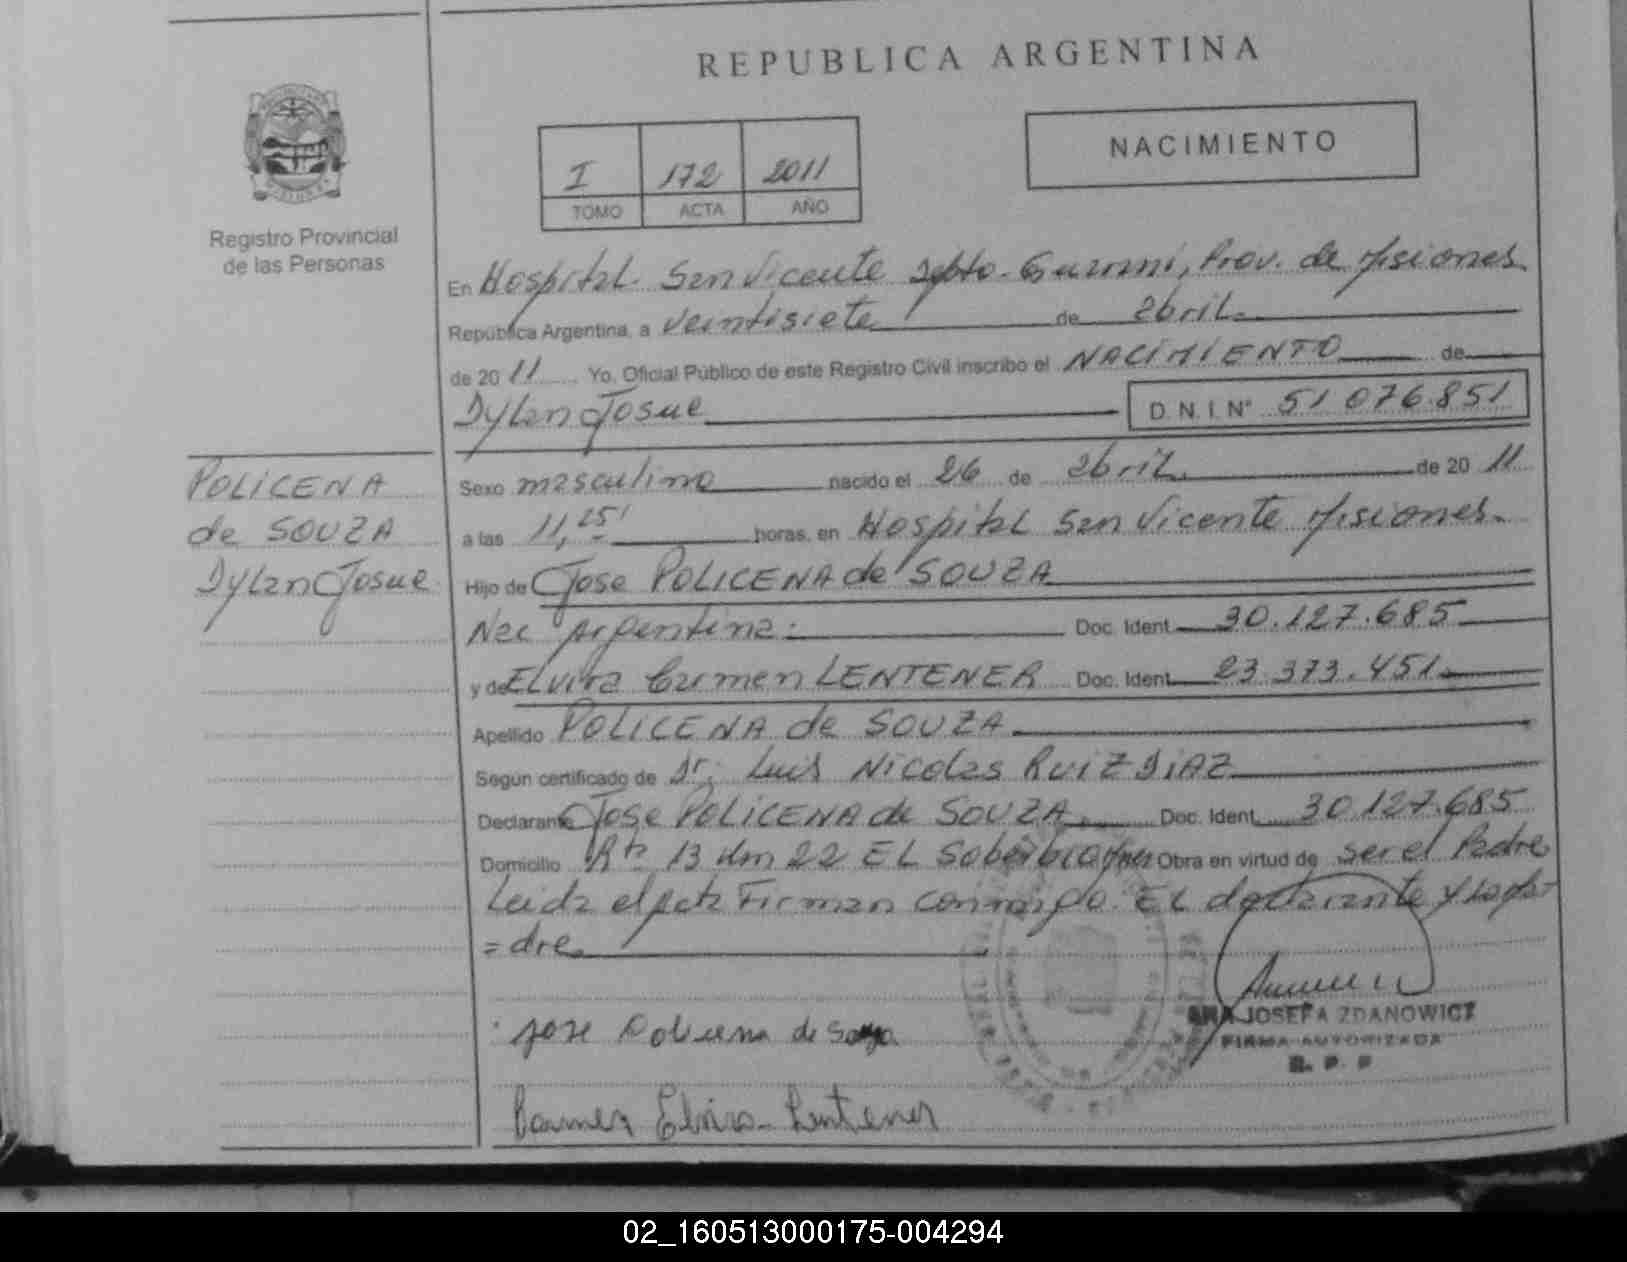 REPUBLICA ARGENTINA
NACIMIENTO
I 172 2011
TOMO ACTA AÑO
Registro Provincial
de las Personas
En Hospital San Vicente Dpto. Guarani, Prov. de Misiones
República Argentina, a veintisiete de abril
de 2011 Yo, Oficial Público de este Registro Civil inscribo el NACIMIENTO de
Dylan Josue D.N.I. N° 51 076.851
POLICENA
de SOUZA
Dylan Josue
Sexo masculino nacido el 26 de abril de 20 11
a las 11,25' horas, en Hospital San Vicente Misiones.
Hijo de Jose POLICENA de SOUZA
Nac Argentina: Doc. Ident. 30.127.685
y de Elvira Carmen LENTENER Doc. Ident. 23.373.451
Apellido POLICENA de SOUZA
Según certificado de Dr; Luis Nicolas RUIZ DIAZ
Declarante Jose POLICENA de SOUZA. Doc. Ident. 30.127.685
Domicilio Rta 13 km 22 EL Soberbio Mnes Obra en virtud de ser el Padre
Leida el acta Firman conmigo. EL declarante y la ma-
=dre
Jose Policena de Souza
Carmen Elvira Lentener
ANA JOSEFA ZDANOWICZ
FIRMA AUTORIZADA
R. P. P
02_160513000175-004294